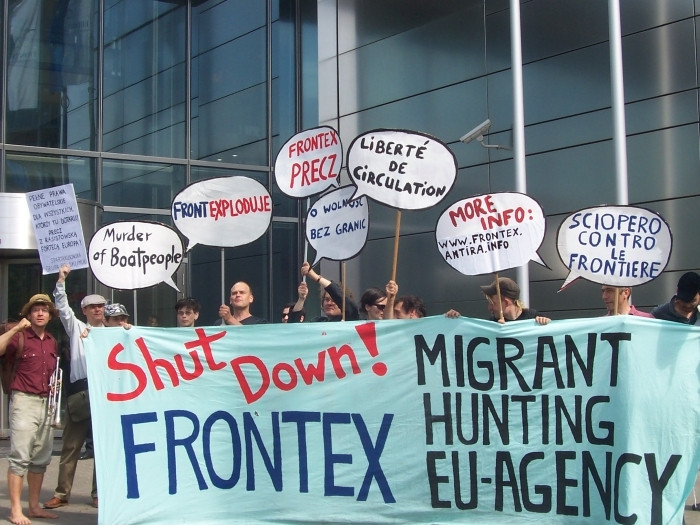 PEŁNE PRAWA
OBYWATELSKIE
DLA WSZYSTKICH
KTÓRZY TU SĄ
PRECZ
Z RASISTOWSKĄ
FORTECĄ EUROPA!
Murder
of Boatpeople
FRONTEXPLODUJE
FRONTEX
PRECZ
O WOLNOŚĆ
BEZ GRANIC
LiBERTÉ
DE
CiRCULATION
MORE
INFO:
WWW.FRONTEX.
ANTIRA.INFO
SCIOPERO
CONTRO
LE
FRONTIERE
Shut Down!
FRONTEX
MIGRANT
HUNTING
EU-AGENCY